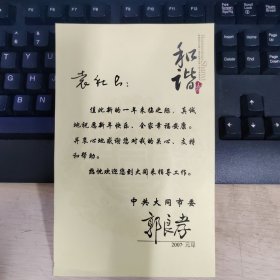 和谐
袁
值此新的一年来临之际，真诚
地祝愿新年快乐、全家幸福安康。
并衷心地感谢您对我的关心、支持
和帮助。
热忱欢迎您到大同来指导工作。
中共大同市委
郭良孝
2007 元旦